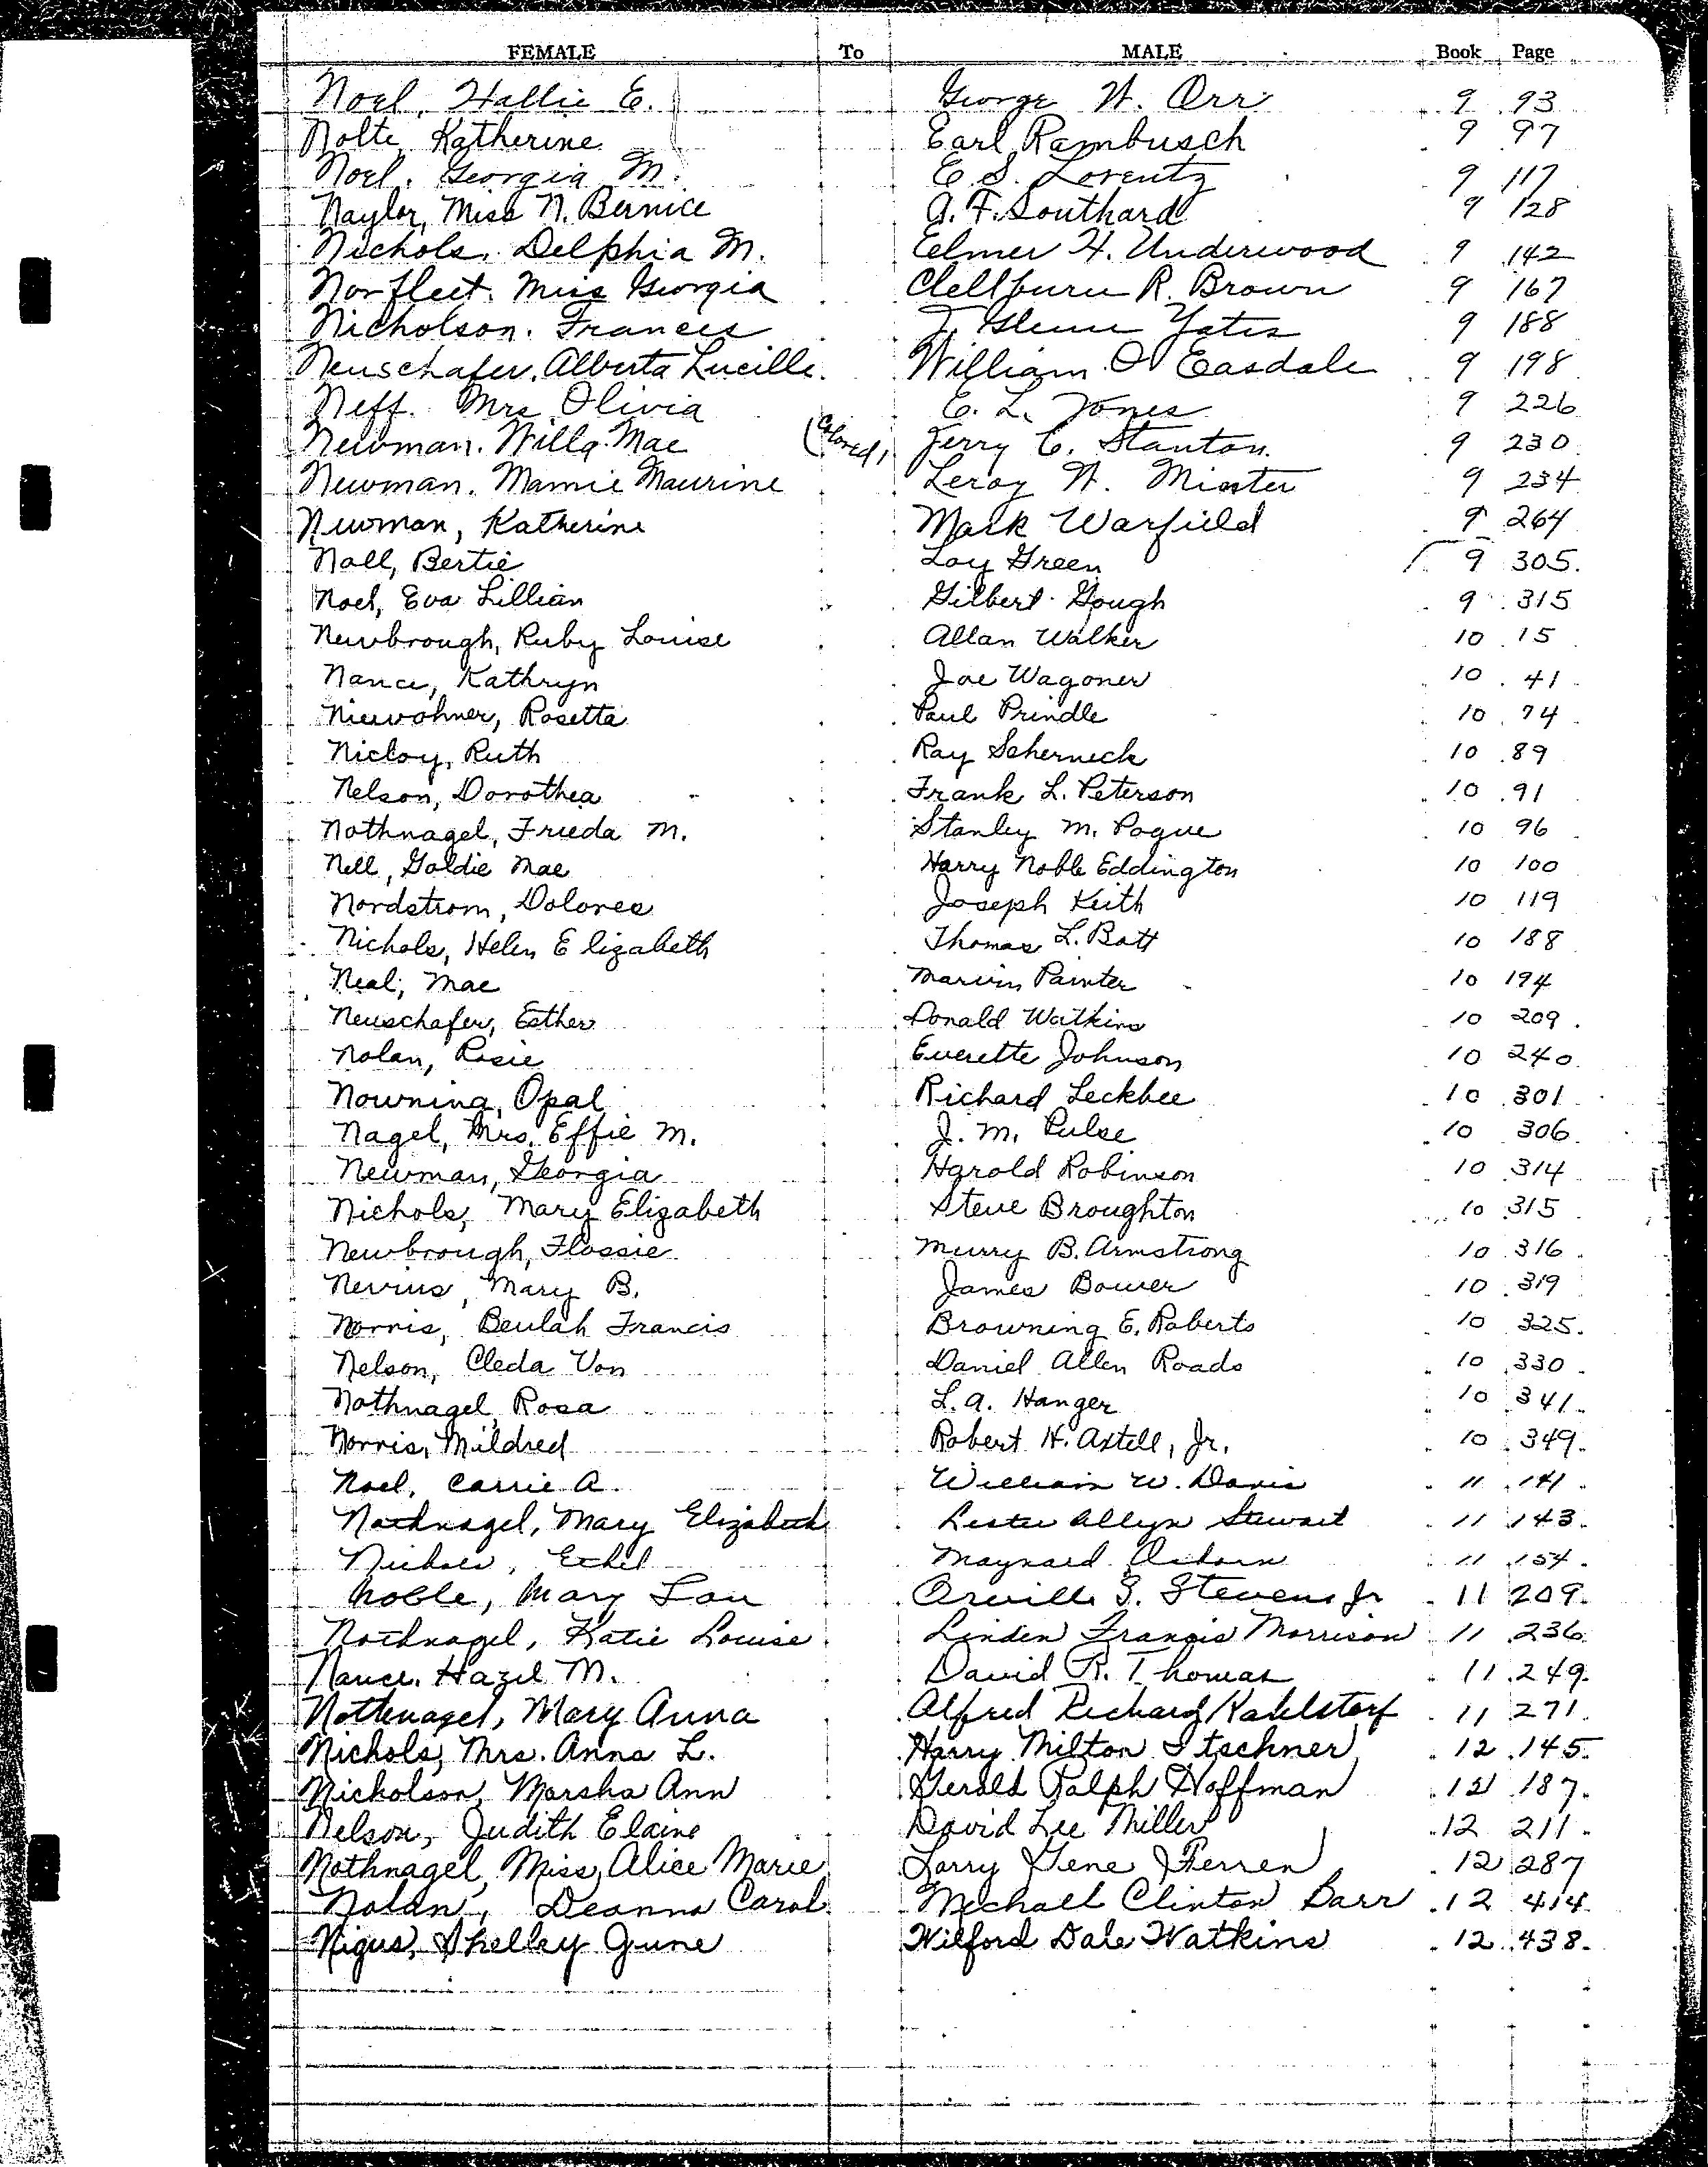 FEMALE To MALE Book Page
Noel, Hallie E. George W. Orr 9 93
Nolte, Katherine Earl Rambusch 9 97
Noel, Georgia M. E. S. Lorentz 9 117
Naylor, Miss N. Bernice A. F. Southard 9 128
Nichols, Delphia M. Elmer H. Underwood 9 142
Norfleet, Miss Georgia R. Brown 9 167
Nicholson, Frances J. Glenn Yates 9 188
Neuschafer, Alberta Lucille William O Easdale 9 198
Neff, Mrs Olivia E. L. Jones 9 226
Newman, Willa Mae (Colored) Jerry C. Stanton 9 230
Newman, Mamie Maurine Leroy W. Minter 9 234
Newman, Katherine Mark Warfield 9 264
Noll, Bertie Loy Green 9 305
Noel, Eva Lillian Gilbert Gough 9 315
Newbrough, Ruby Louise Allan Walker 10 15
Nance, Kathryn Joe Wagoner 10 41
Niewohner, Rosetta Paul Prindle 10 74
Nicloy, Ruth Ray Scherneck 10 89
Nelson, Dorothea Frank L. Peterson 10 91
Nothnagel, Frieda M. Stanley M. Pogue 10 96
Nell, Goldie Mae Harry Noble Eddington 10 100
Nordstrom, Dolores Joseph Keith 10 119
Nichols, Helen Elizabeth Thomas L. Bott 10 188
Neal, Mae Marvin Painter 10 194
Neuschafer, Esther Donald Watkins 10 209
Nolan, Rosie Everette Johnson 10 240
Nowning, Opal Richard Leckbee 10 301
Nagel, Mrs. Effie M. J. M. Pulse 10 306
Newman, Georgia Harold Robinson 10 314
Nichols, Mary Elizabeth Steve Broughton 10 315
Newbrough, Flossie Murry B. Armstrong 10 316
Nevius, Mary B. James Bower 10 319
Norris, Beulah Francis Browning E. Roberts 10 325
Nelson, Cleda Von Daniel Allen Roads 10 330
Nothnagel, Rosa L. A. Hanger 10 341
Norris, Mildred Robert H. Axtell, Jr. 10 349
Noel, Carrie A. William W. Davis 11 141
Nothnagel, Mary Elizabeth Lester Allyn Stewart 11 143
Ethel Maynard 11 154
Noble, Mary Lou Orville G. Stevens Jr 11 209
Nothnagel, Katie Louise Linden Francis Morrison 11 236
Nance, Hazel M. David R. Thomas 11 249
Nothnagel, Mary Anna Alfred Richard Kahlstorf 11 271
Nichols, Mrs. Anna L. Harry Milton Itschner 12 145
Nicholson, Marsha Ann Gerald Ralph Hoffman 12 187
Nelson, Judith Elaine David Lee Miller 12 211
Nothnagel, Miss Alice Marie Larry Gene Ferren 12 287
Nolan, Deanna Carol Michael Clinton Barr 12 414
Nigus, Shelley June Wilford Dale Watkins 12 438